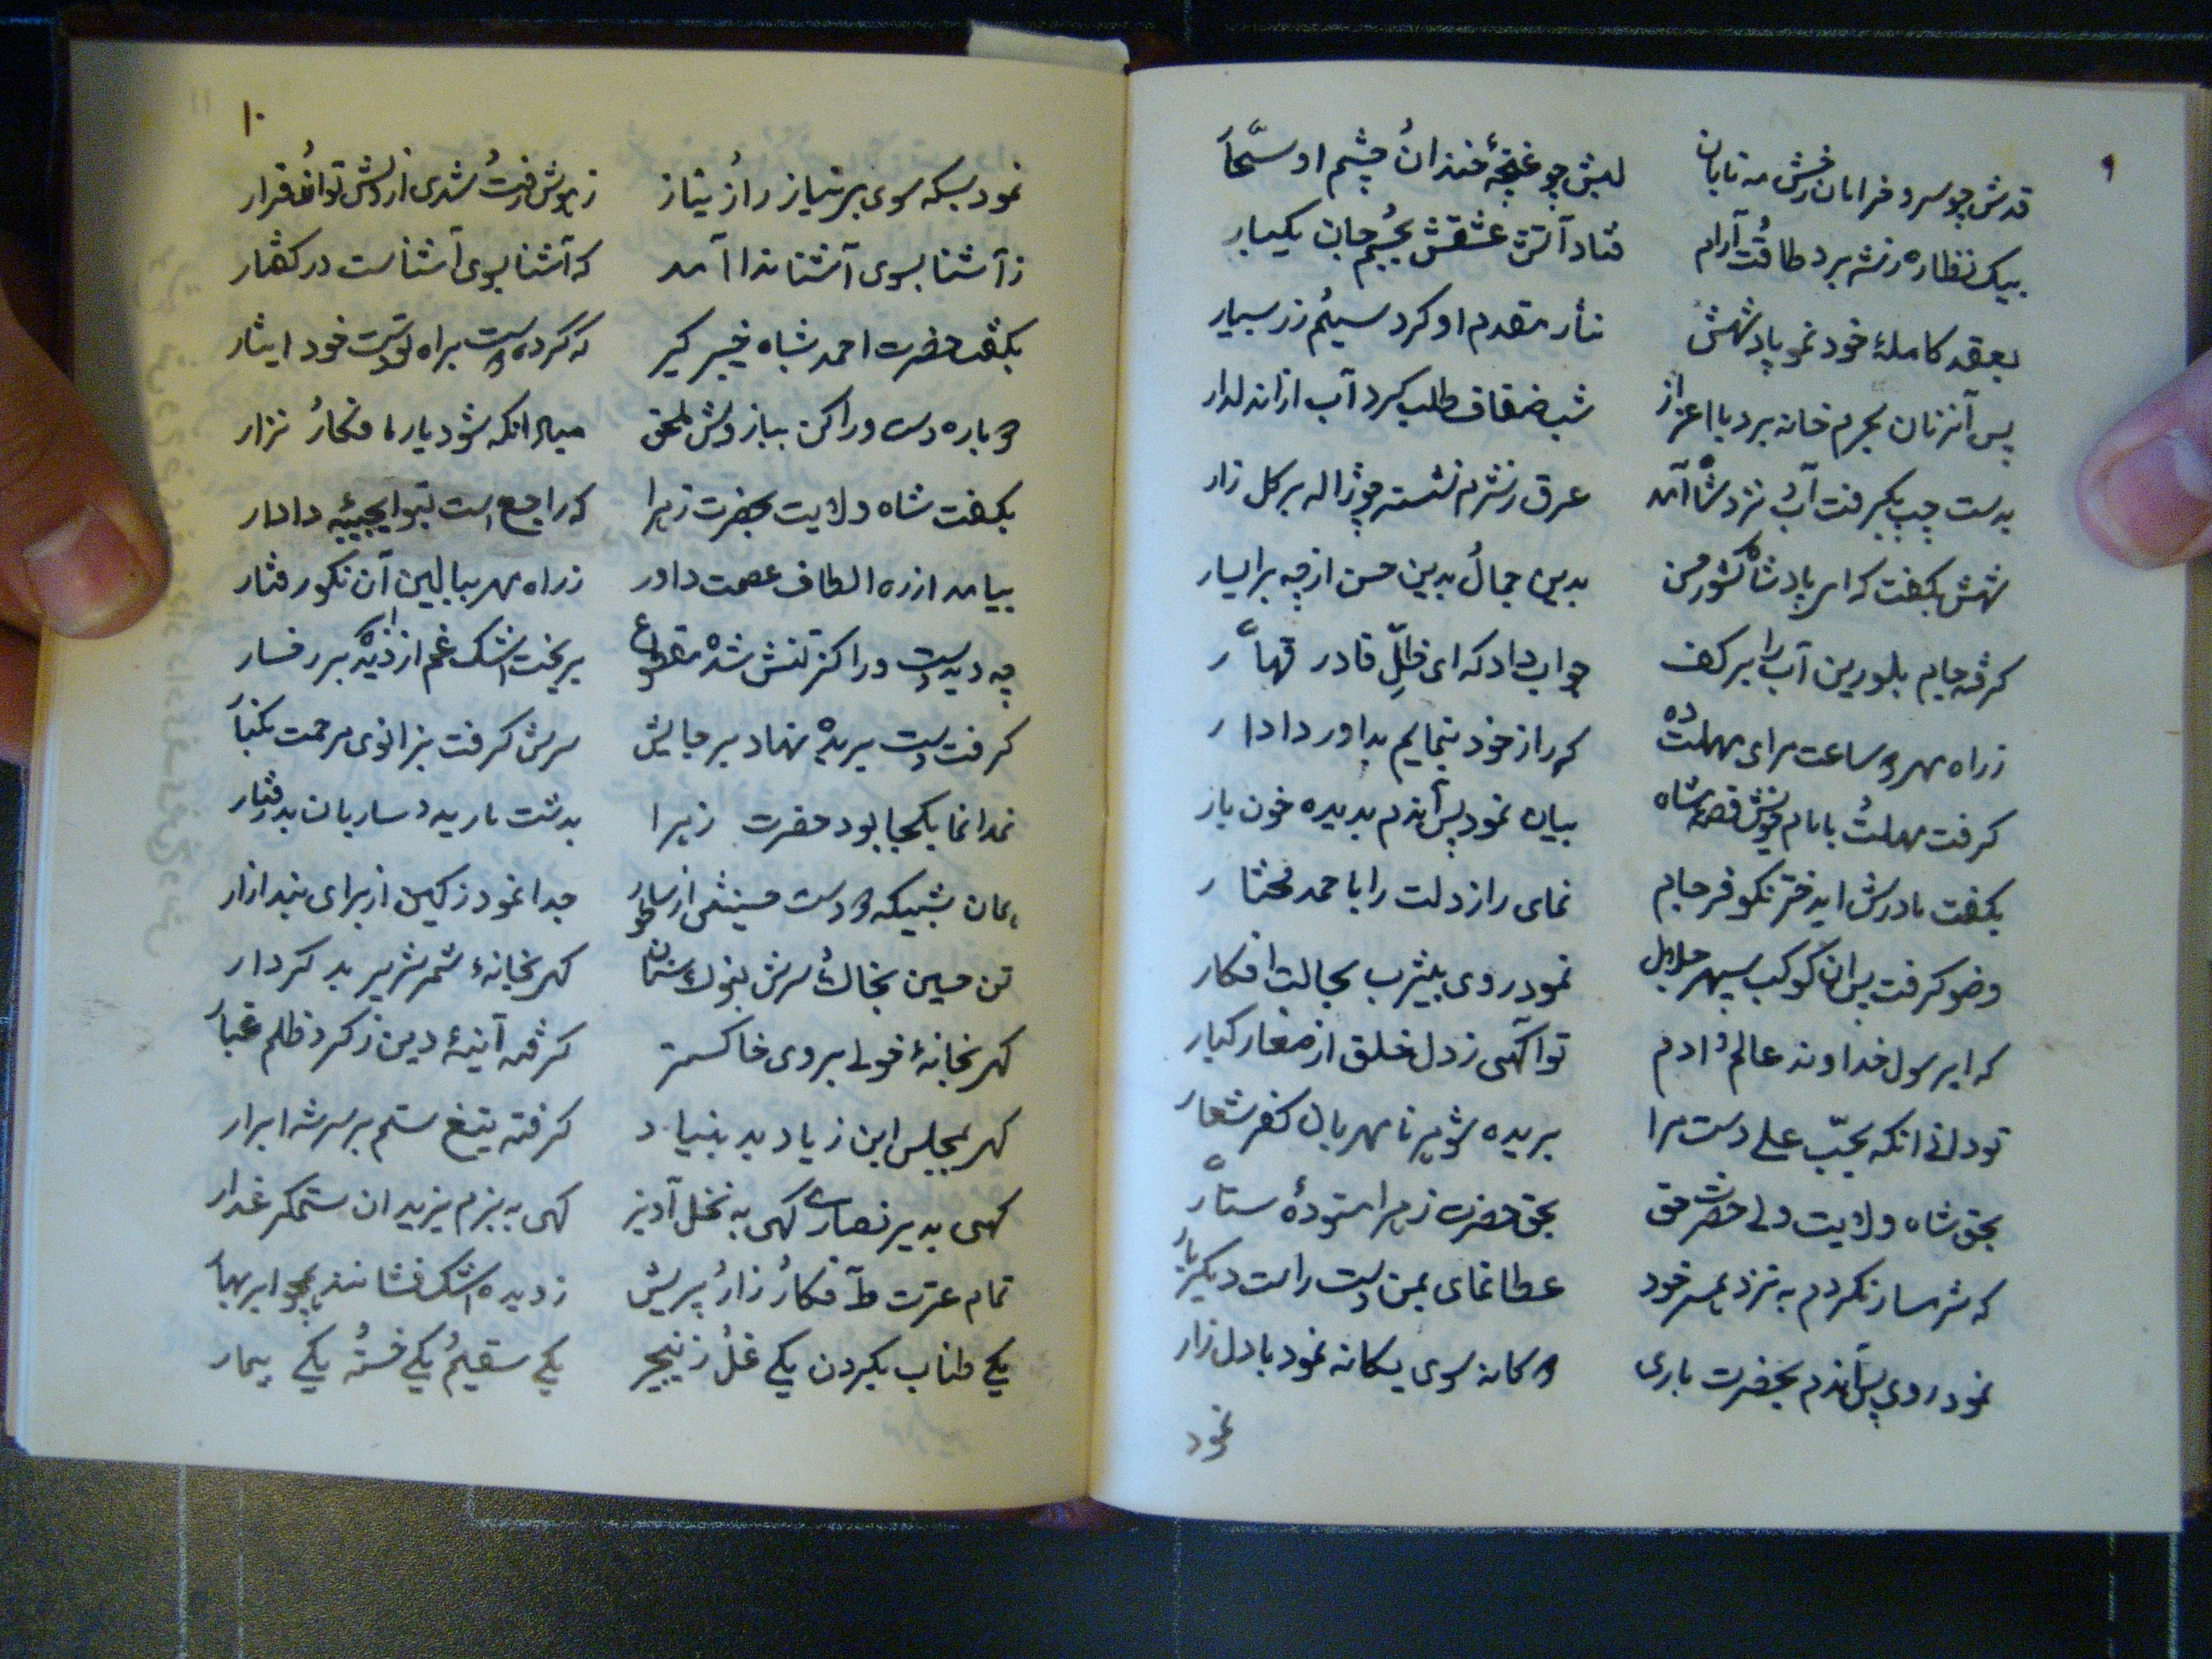 ۹
قدش چو سرو خرامان رخش مه تابان لبش چو غنچهٔ خندان چشم او سحار
بیک نظاره زشه برد طاقت آرام فتاد آتش عشقش بجسم جان یکبار
بعقد کاملهٔ خود نمود پادشهش نثار مقدم او کرد سیم زر بسیار
پس آنزنان بحرم خانه برد با اعزاز شب ضفاف طلب کرد آب از اندلدار
بدست چپ بگرفت آب نزد شاه آمد عرق زشرم نشسته چو ژاله بر گل زار
شهش بگفت که ای پادشاه کشور حسن بدین جمال بدین حسن از چه بر ایسار
گرفته جام بلورین آب را بر کف جواب داد که ای ظلّ قادر قهّار
ز راه مهر دو ساعت مرای مهلت ده که راز خود بنمایم بداور دادار
گرفت مهلت با مام خویش قصهٔ شاه بیان نمود پس آندم بدیده خون بار
بگفت مادرش ایدختر نکو فرجام نمای راز دلت را با حمد مختار
وضو گرفت پس ان کوکب سپهر جلال نمود روی بیثرب بحالت افکار
که ایرسول خداوند عالم و ادم تو آگهی ز دل خلق از صغار کبار
تو دانی انکه بحبّ علی دست مرا بریده شوهر نامهربان کفر شعار
بحق شاه ولایت ولی حضرت حق بحق حضرت زهرا ستودهٔ ستّار
که شرمسار نگردم به نزد همسر خود عطا نمای بمن دست راست دیگر بار
نمود روی پس آندم بحضرت باری دو گانه سوی یگانه نمود با دل زار
نمود
۱۰
نمود بسکه سوی بی نیاز راز نیاز ز هوش رفت شدی از دلش توان قرار
ز آشنا بسوی آشنا ندا آمد که آشنا بسوی آشناست در گفتار
بگفت حضرت احمد بشاه خیبر گیر که کرده دست براه تو دست خود ایثار
دوباره دست ورا کن ببازویش ملحق مبادا انکه شود یار ما فکار نزار
بگفت شاه ولایت بحضرت زهرا که راجع است بتو ایحبیبهٔ دادار
بیامد از ره الطاف عصمت داور ز راه مهر ببالین آن نکو رفتار
چه دید دست ورا کز تنش شده مقطوع بریخت اشک غم از دیده بر رخسار
گرفت دست بریده نهاد بر جایش سرش گرفت بزانوی مرحمت بکنار
ندانما بکجا بود حضرت زهرا بدشت ماریه و ساربان بد رفتار
همان شبیکه دو دست حسینش از ساطور جدا نمود ز کین از برای بند ازار
تن حسین بخاک و سرش بنوک سنان گهی بخانهٔ شمر شریر بد کردار
گهی بخانهٔ خولی بروی خاکستر گرفته آینهٔ دین ز گرد ظلم غبار
گهی بمجلس ابن زیاد بد بنیاد گرفته تیغ ستم بر سر شه ابرار
گهی بدیر نصاری گهی به نخل آویز گهی به بزم یزید ان ستمگر غدار
تمام عترت طه فکار زار پریش ز دیده اشک فشانند همچو ابر بهار
یکی طناب بگردن یکی غل و زنجیر یکی سقیم یکی خسته یکی بیمار